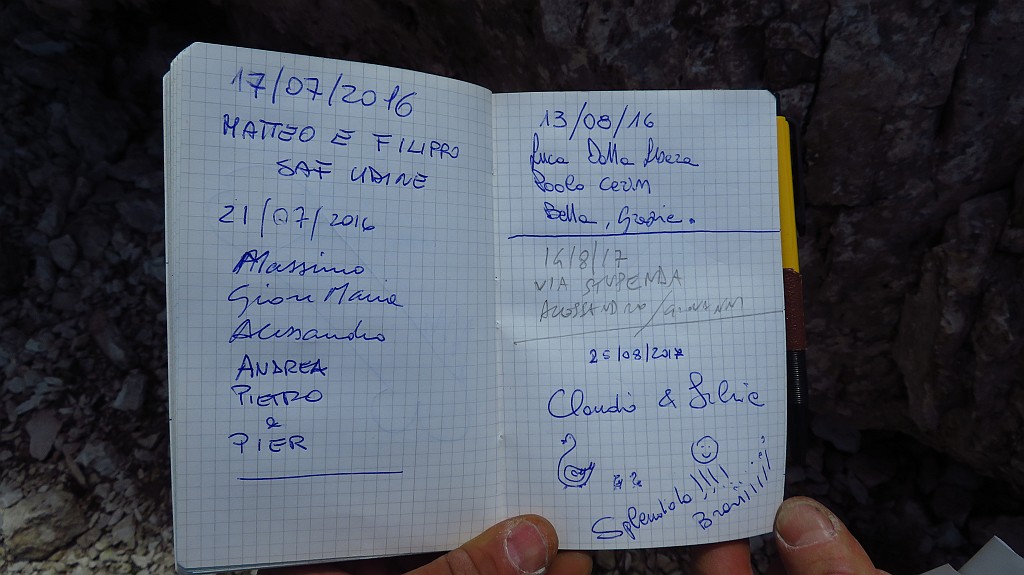 17/07/2016
MATTEO E FILIPPO
SAF UDINE
21/07/2016
Massimo
Gian Maria
Alessandro
ANDREA
PIETRO
e
PIER
13/08/16
Luca Dalla
Paolo
Bella, Grazie.
14/8/17
VIA STUPENDA
ALESSANDRO/GIOVANNI
/08/2017
Claudio & Silvia
Splendido!!!!
Braviiiiii